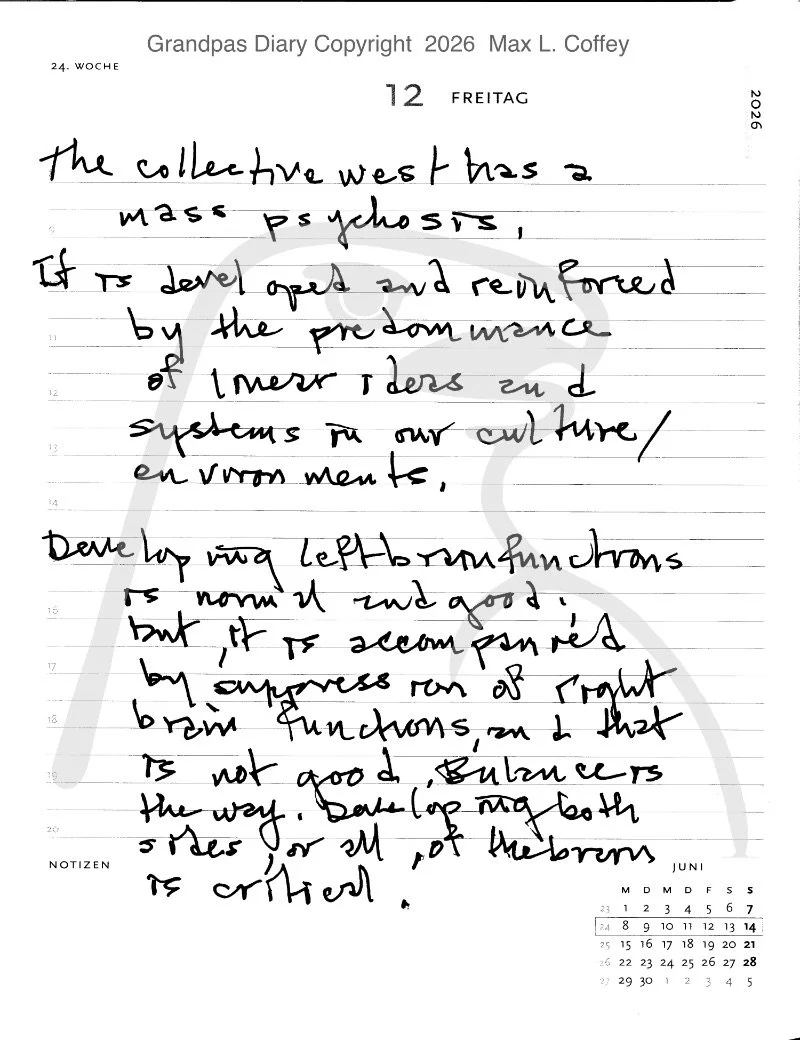 Grandpas Diary Copyright 2026 Max L. Coffey
24. WOCHE
12 FREITAG
2026
The collective west has a
mass psychosis,
It is developed and reinforced
by the predominance
of linear ideas and
systems in our culture/
environments,
Developing left brain functions
is normal and good,
but, it is accompanied
by suppression of right
brain functions, and that
is not good, Balance is
the way. Developing both
sides, or all, of the brain
is critical.
9
11
12
13
14
16
17
18
19
20
NOTIZEN
JUNI
M D M D F S S
23 1 2 3 4 5 6 7
24 8 9 10 11 12 13 14
25 15 16 17 18 19 20 21
26 22 23 24 25 26 27 28
27 29 30 1 2 3 4 5